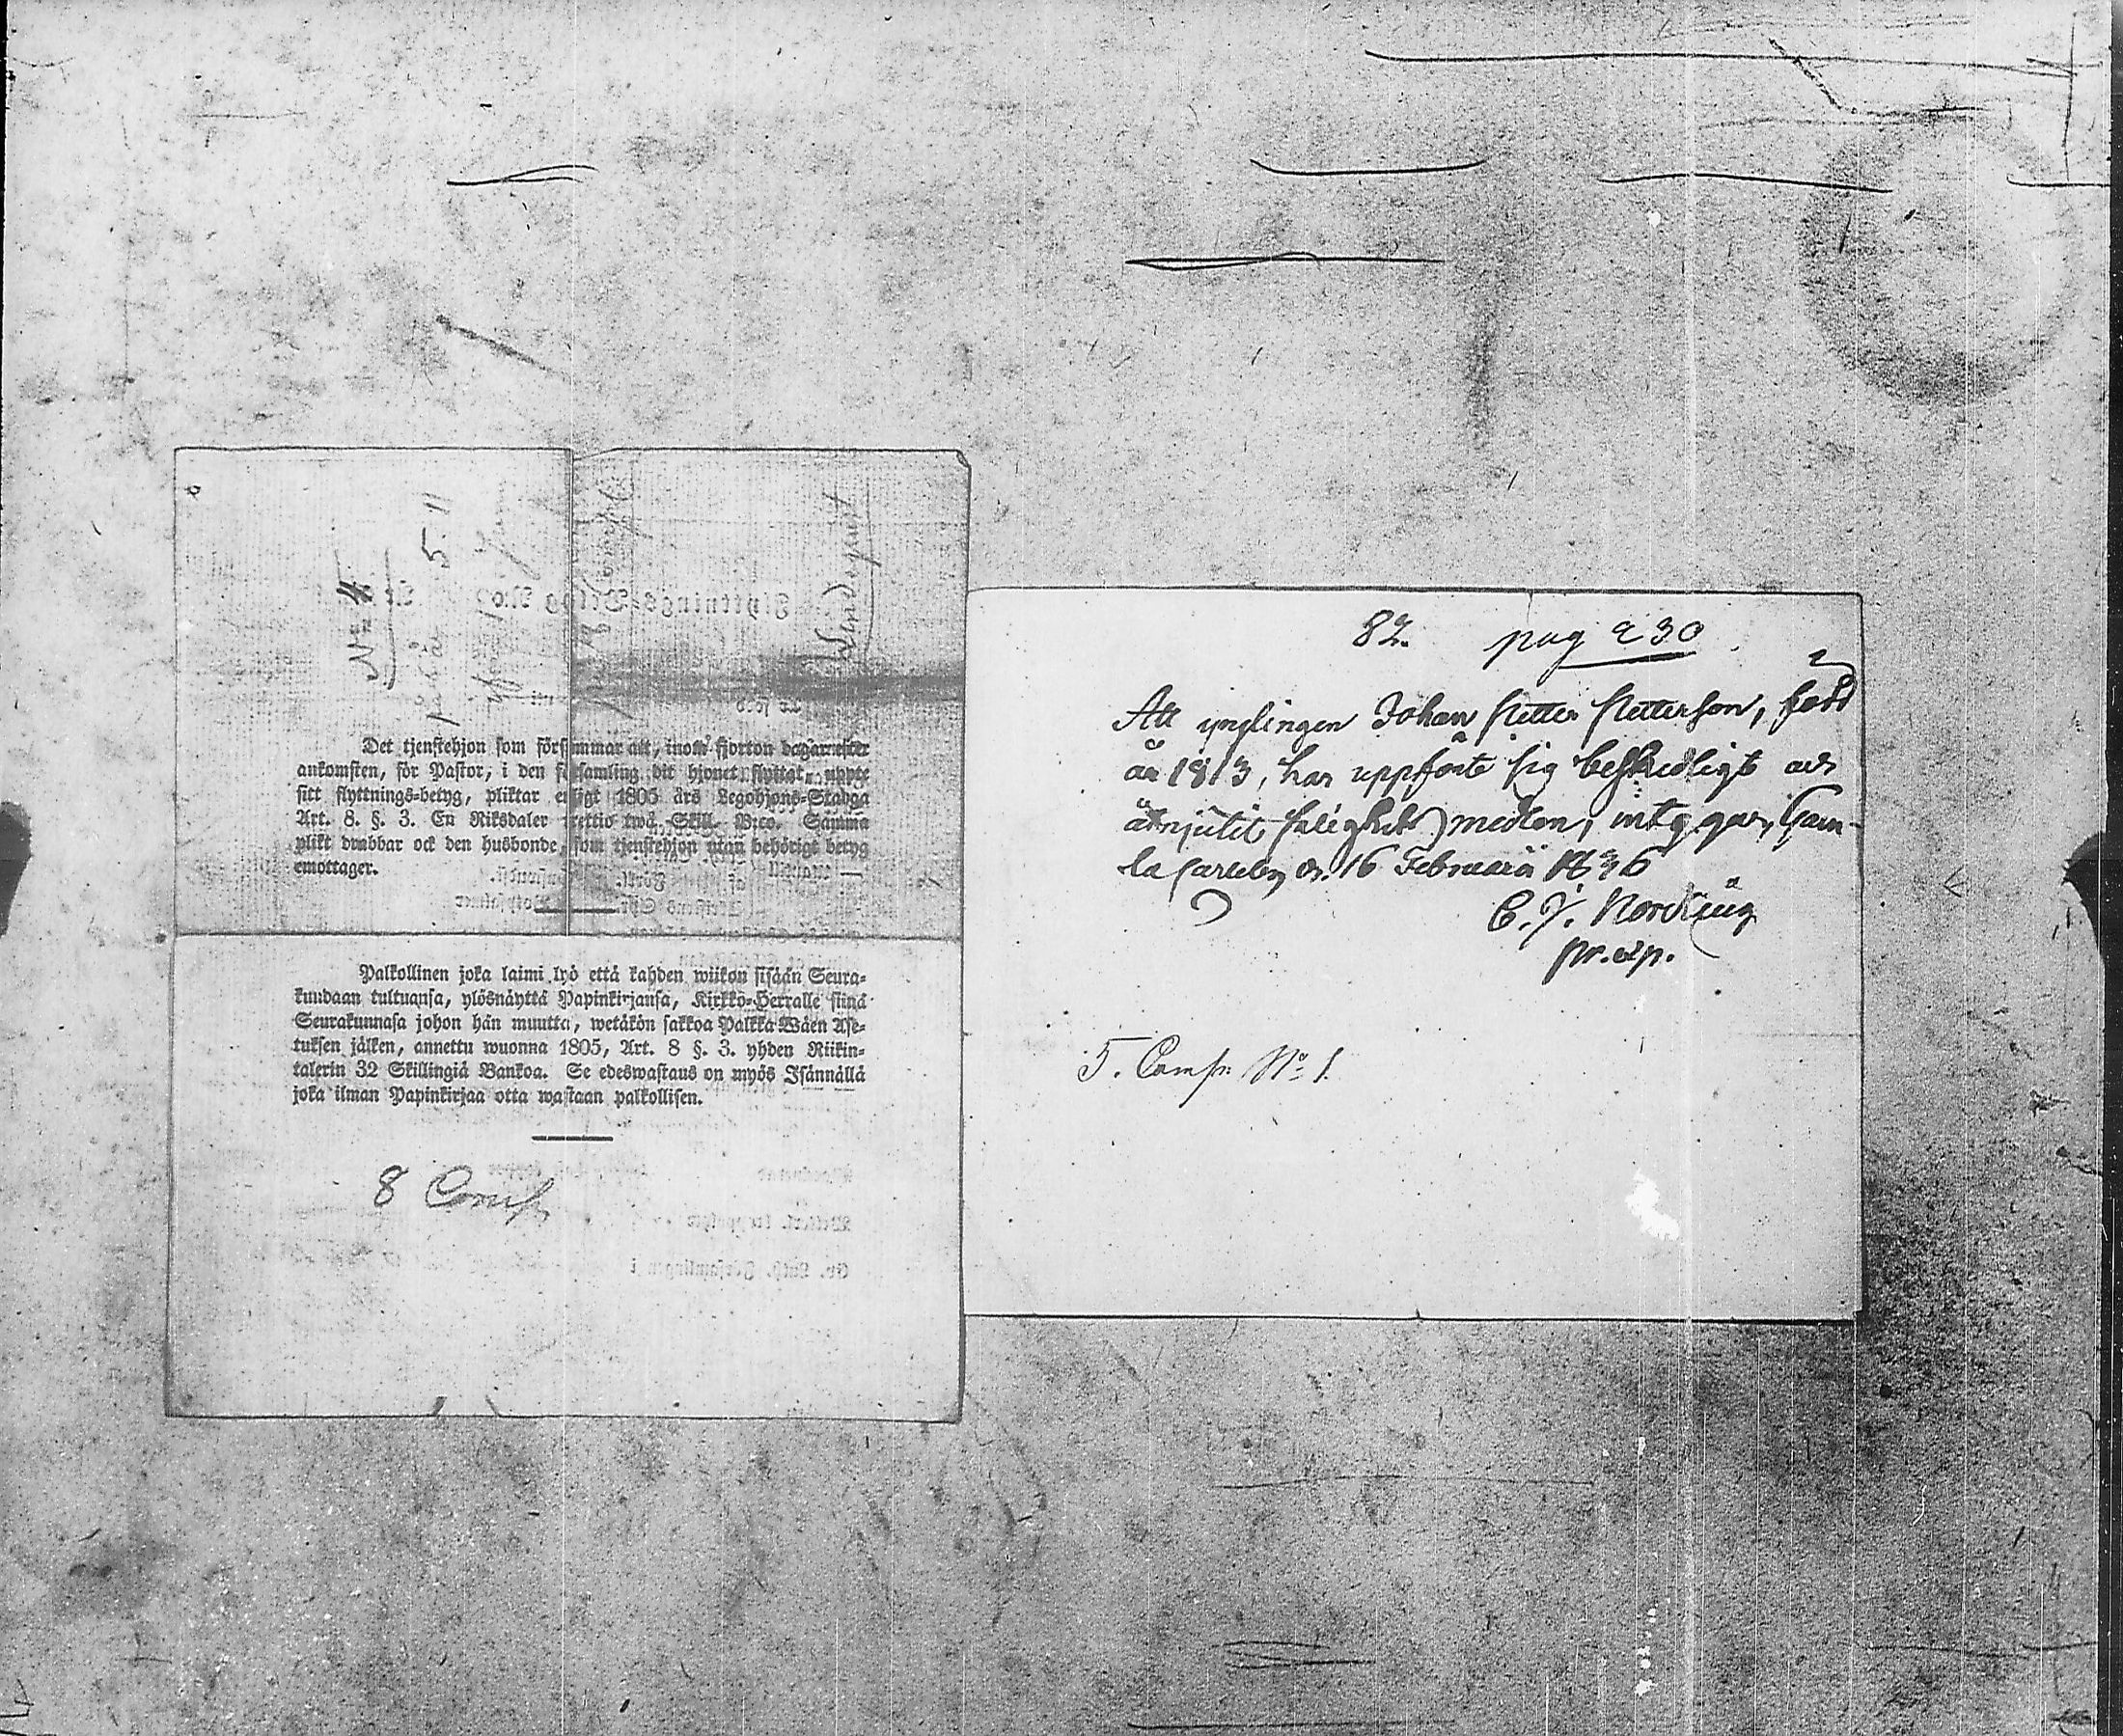 No 4
5. 11
Det tjenstehjon som försummar att, inom fjorton dagar efter
ankomsten, för Pastor, i den församling dit hjonet flyttat uppte
sitt flyttnings-betyg, pliktar enligt 1805 års Legohjons-Stadga
Art. 8. §. 3. En Riksdaler trettio twå Skill. B:co. Samma
plikt drabbar ock den husbonde, som tjenstehjon utan behörigt betyg
emottager.
Palkollinen joka laimi lyö että kahden wiikon sisään Seura-
kundaan tultuansa, ylösnäyttä Papinkirjansa, Kirkko-Herralle siinä
Seurakunnasa johon hän muutta, wetäkön sakkoa Palkka Wäen Ase-
tuksen jälken, annettu wuonna 1805, Art. 8 §. 3. yhden Riikin-
talerin 32 Skillingiä Bankoa. Se edeswastaus on myös Isännällä
joka ilman Papinkirjaa otta wastaan palkollisen.
8 Comp
82. pag 230
Att ynglingen Johan Petter Petterson, född
år 1813, har uppfört sig beskedligt och
åtnjutit salighets medlen, intygar, Gam-
la Carleby d. 16 Februarii 1836
C. J. Nordling
pr. exp.
5. Comp. No 1.